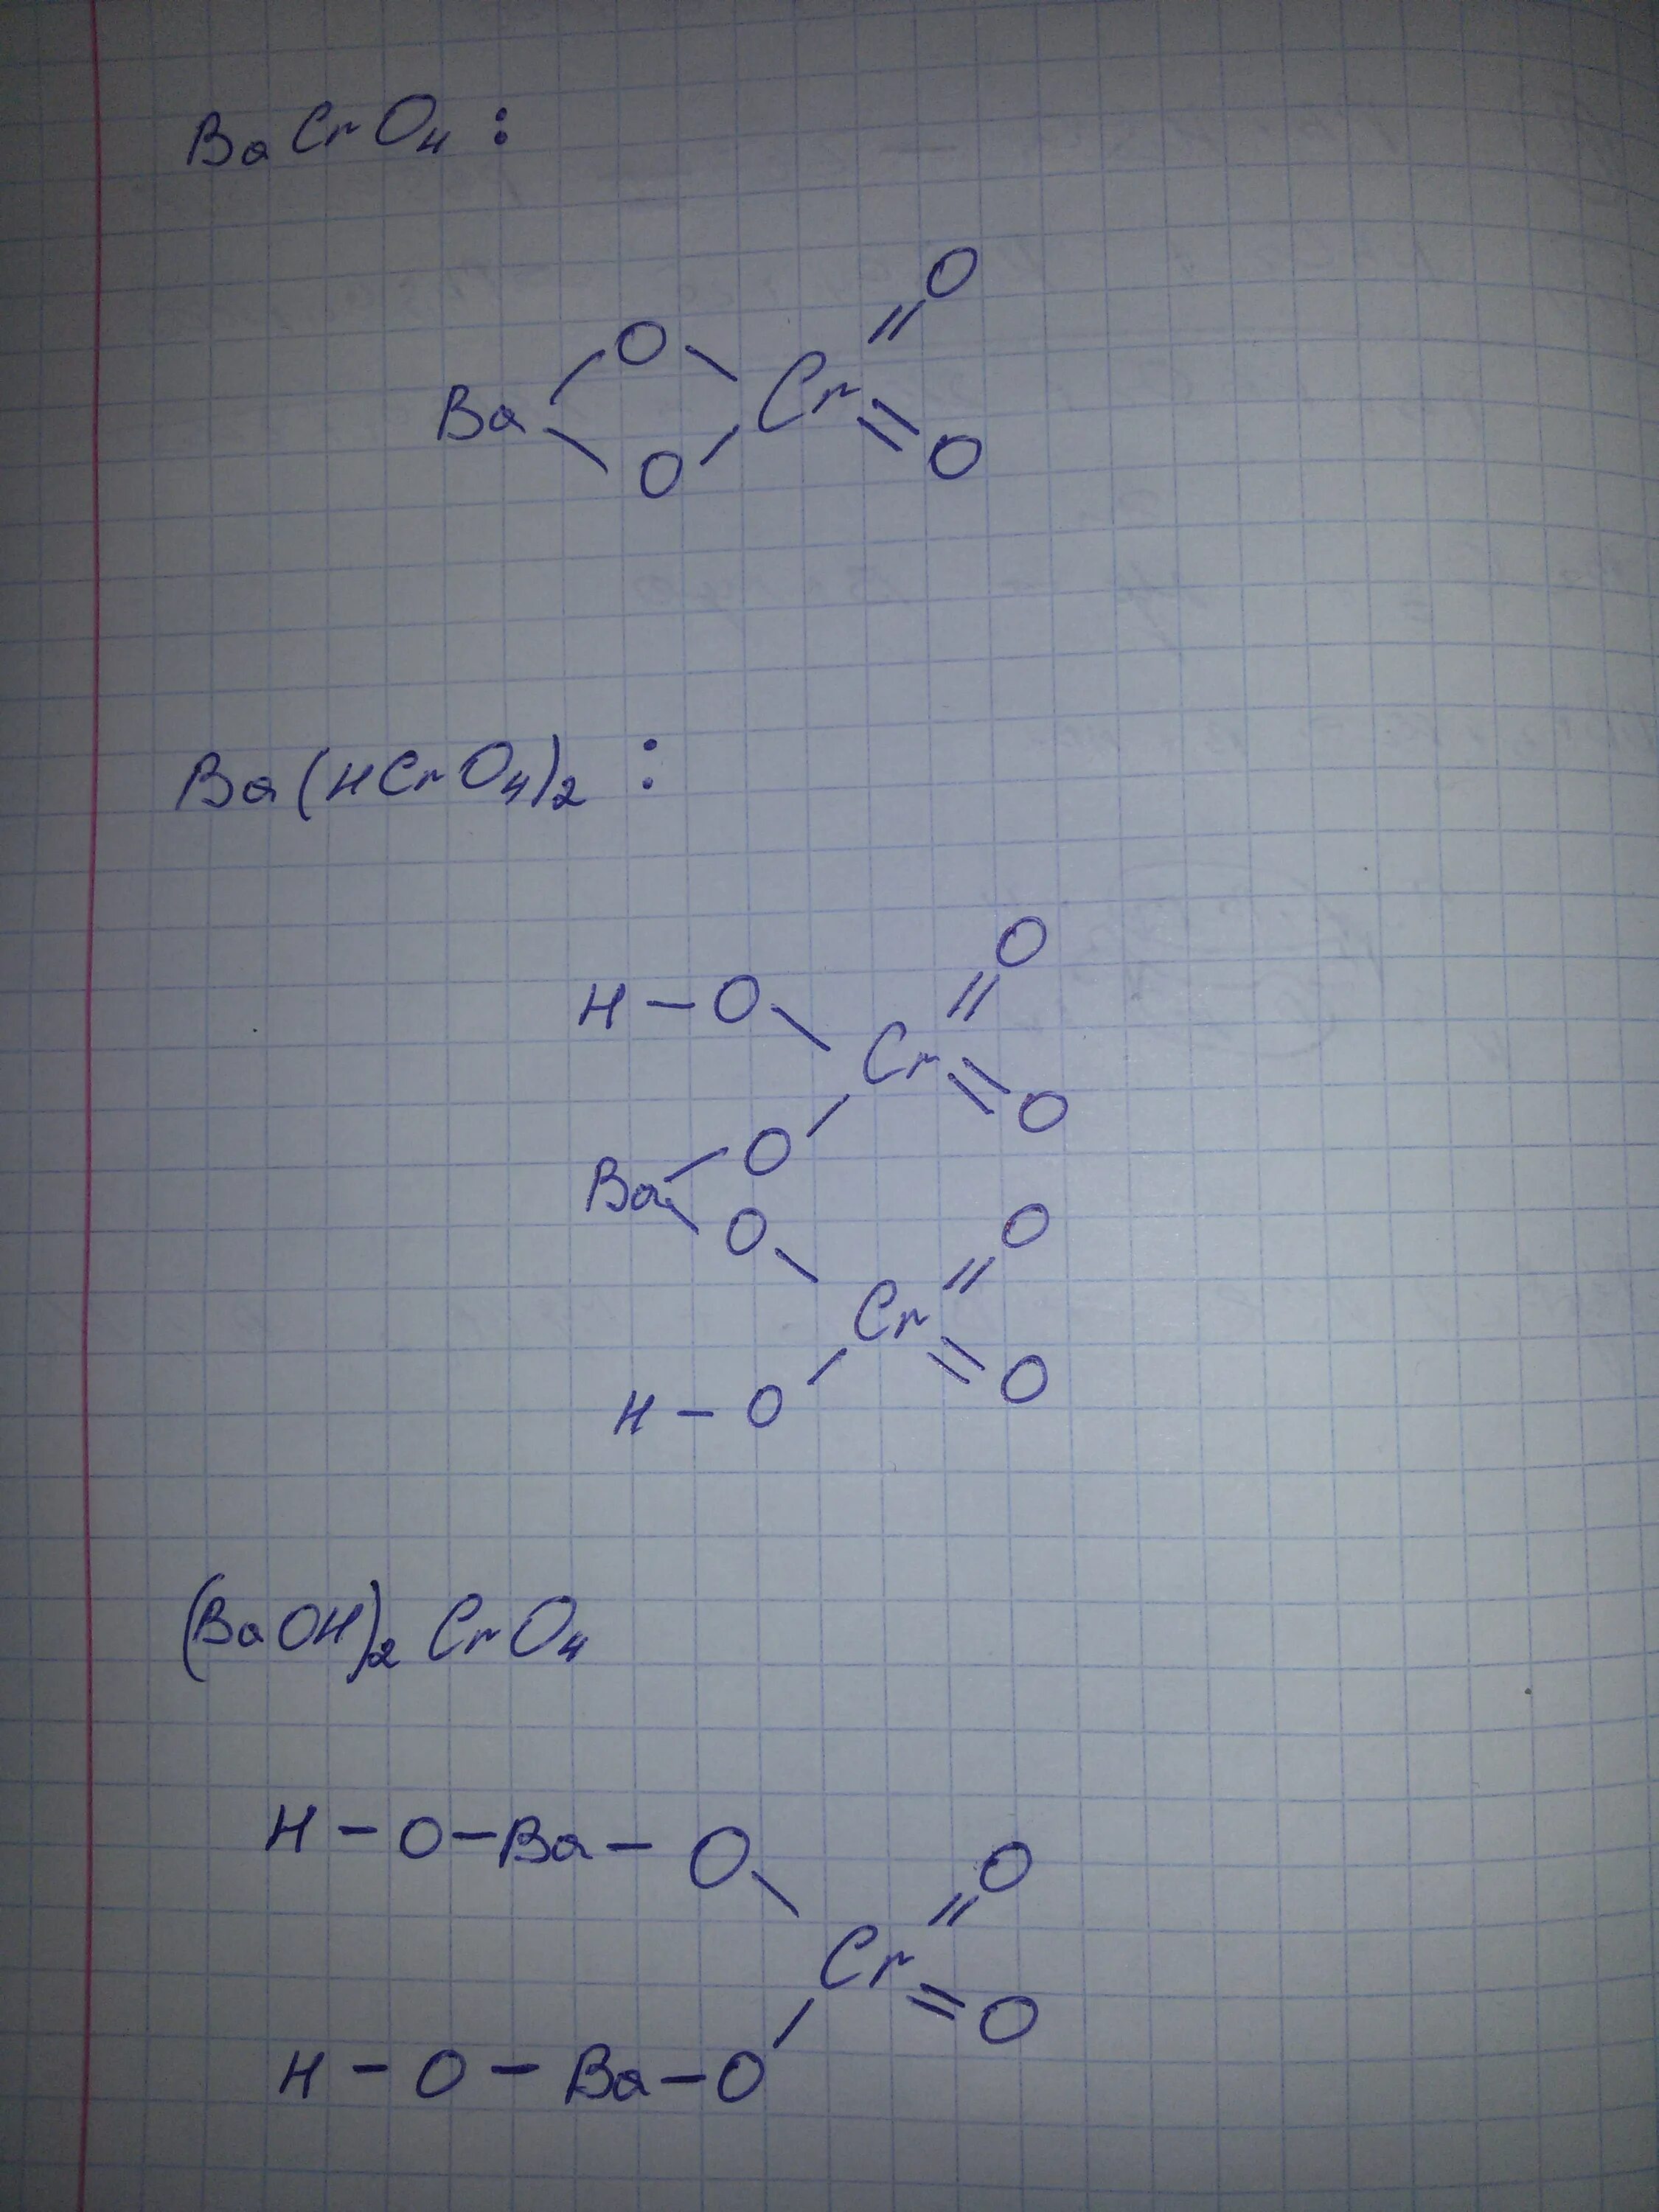 BaCrO4 :
O
O
Ba Cr
O
O
Ba(HCrO4)2 :
O
H - O
Cr
O
O
Ba
O
O
Cr
O
H - O
(BaOH)2 CrO4
H - O - Ba - O
O
Cr
O
H - O - Ba - O